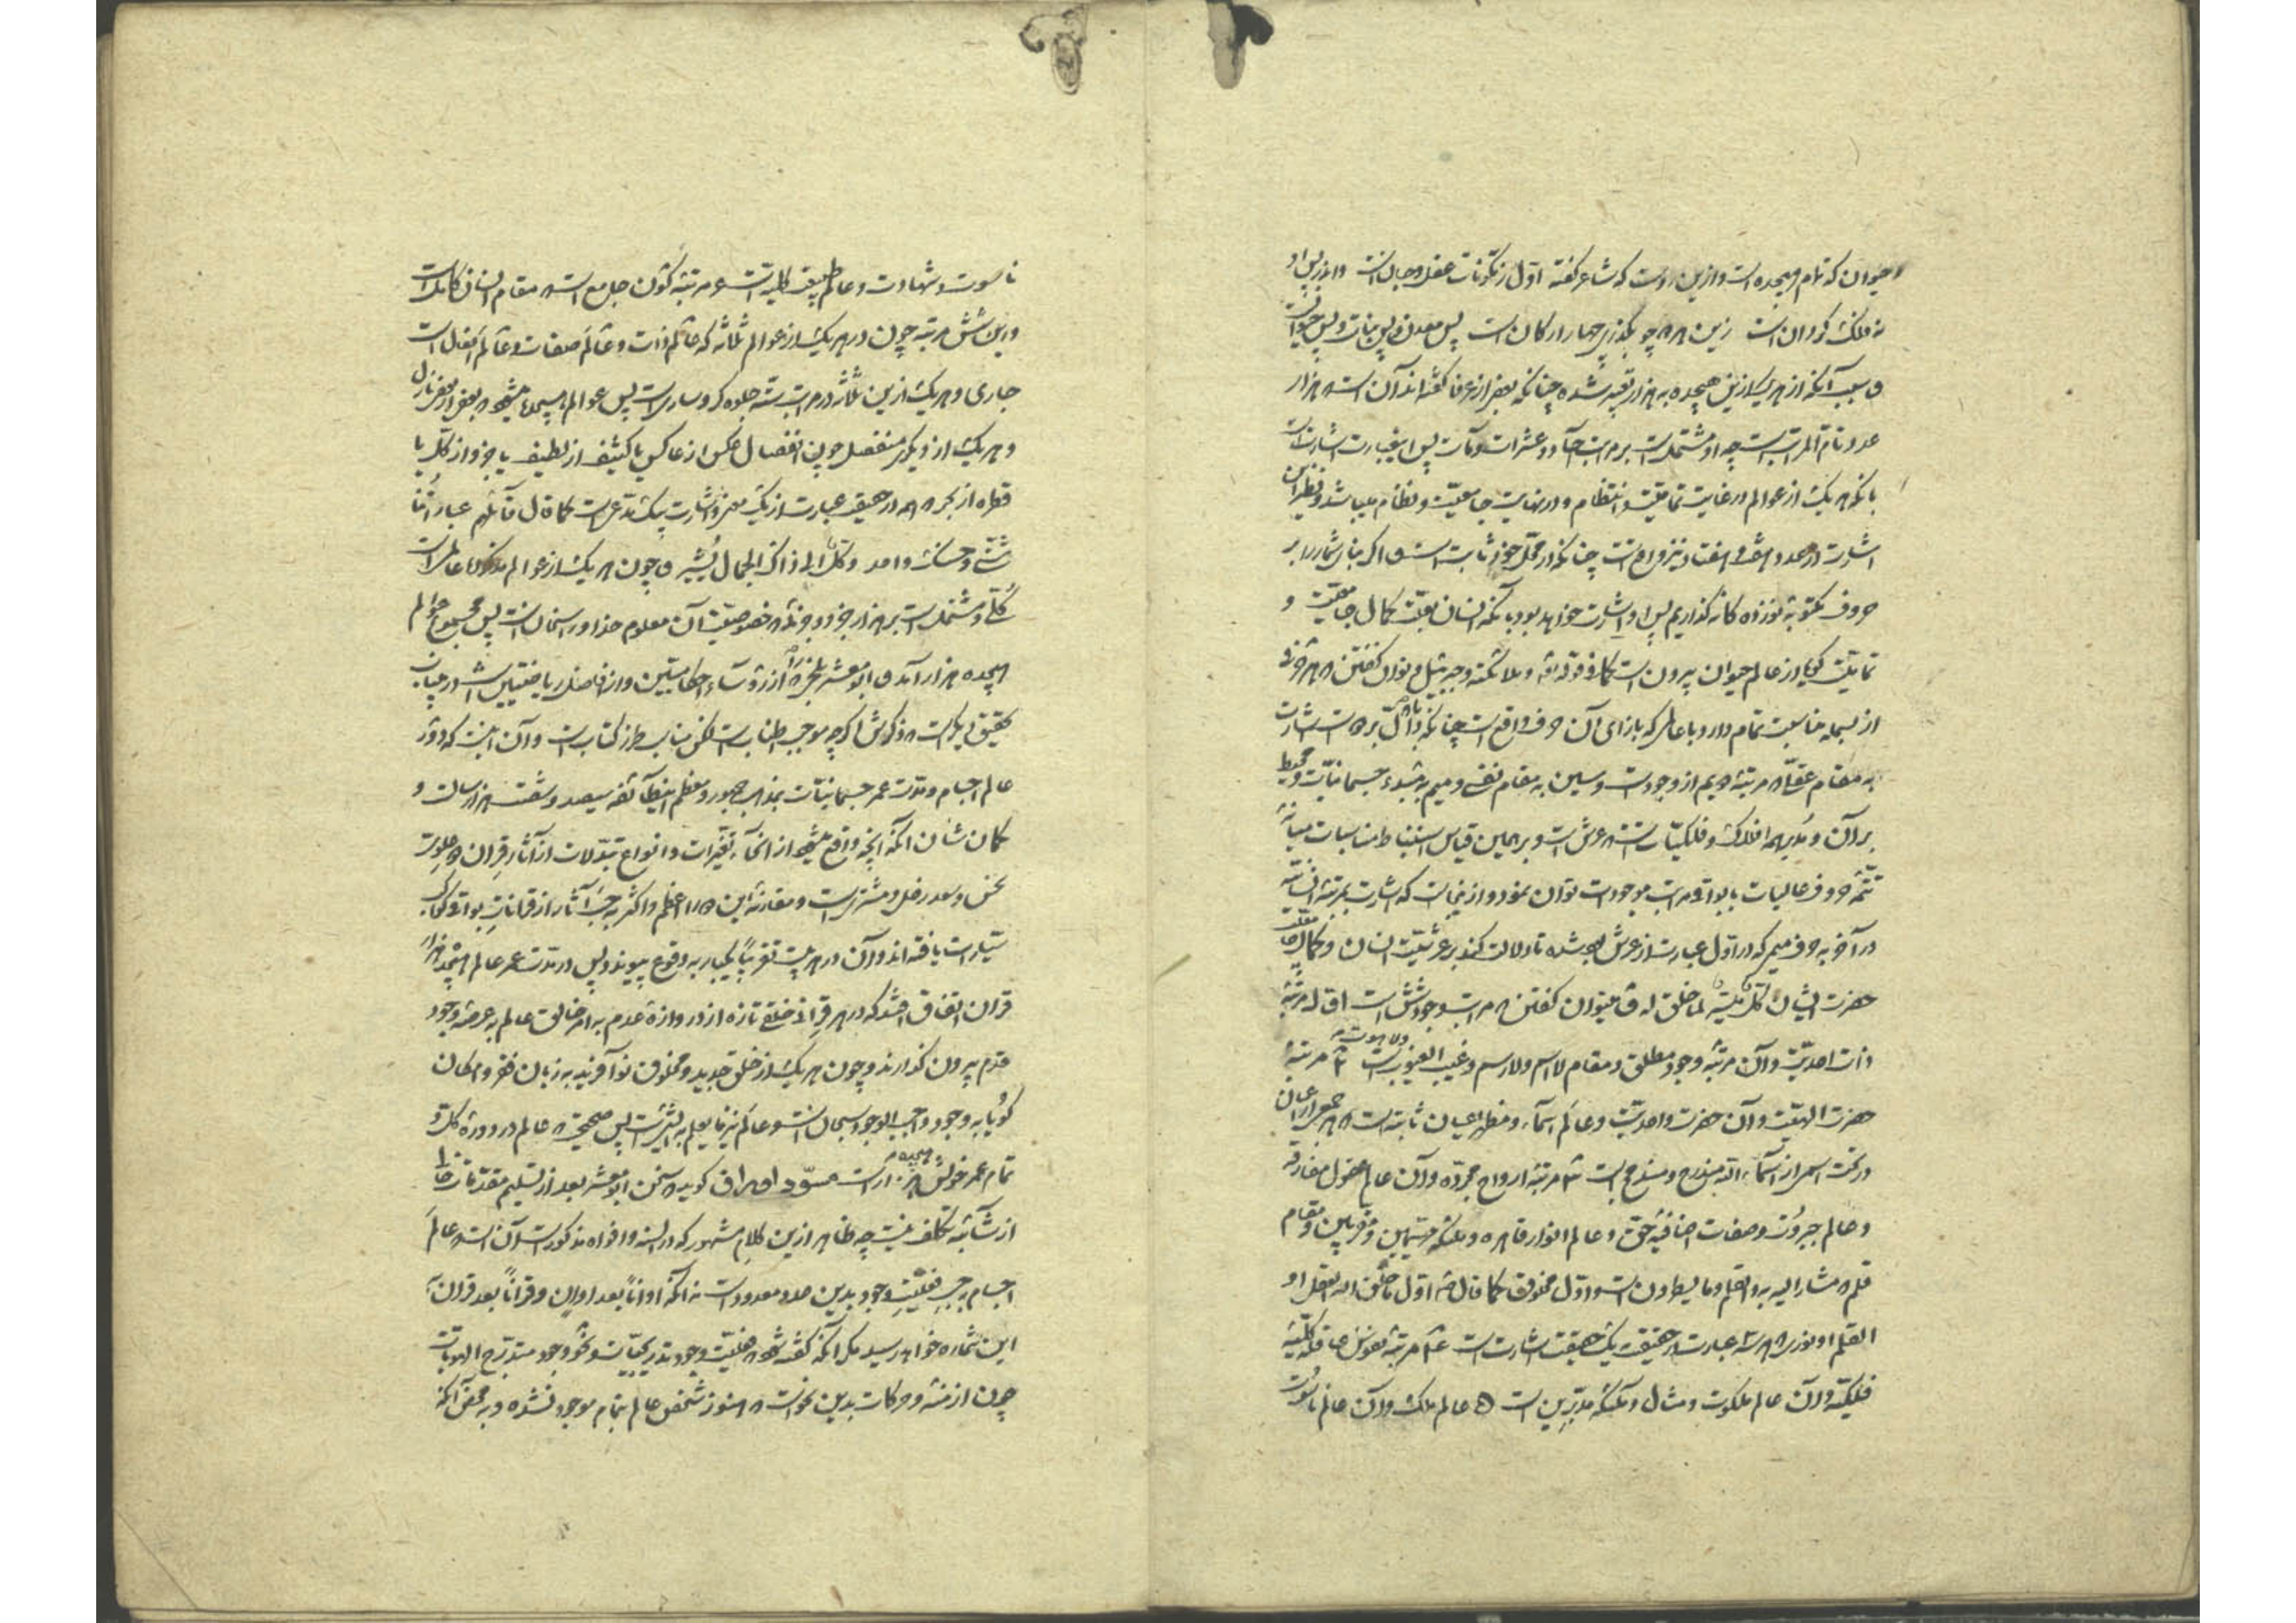 وحیوان که تمام هیجده است و ازین روست که شاعر گفته اول ز مکونات عقل و جان است واندر پس او
نه فلک گردان است زین همه چو بگذری چهار ارکان است پس معدن و پس نبات و پس حیوان است
و بسبب آنکه از هر یک ازین هیجده به هزار تعبیر شده چنانکه بعضی از عرفا گفته‌اند آن است که هزار
عدد تام المراتب است چه او مشتمل است بر مراتب آحاد و عشرات و مآت پس این عبارت اشارت است
بانکه هر یک از عوالم در غایت تمامیت و انتظام و در نهایت جامعیت و نظام میباشد و نظیر این
اشارت در عدد هفت و هفتاد نیز واقع است چنانکه در محل خود ثابت است و اگر بنای شمار را بر
حروف مکتوبه نوزده گانه گذاریم پس او اشارت خواهد بود بانکه انسان بعلت کمال جامعیت و
تمامیت گویا از عالم حیوان بیرون است کما فی قوله و ملائکته وجبرئیل و توان گفتن که هر حرفی
از بسمله مناسبت تمام دارد با عالمی که بازای آن حرف واقع است چنانکه با دال بر اشارت
به مقام عقل که مرتبه دویم از وجود است و سین به مقام نفس و میم به مبدء جسمانیات و محیط
بر آن و مدیر همه افلاک و فلکیات است که عرش است و برهمین قیاس استنباط مناسبات میانه
تتمه حروف عالیات با بواقی مراتب موجودات توان نمود و از اینجاست که اشارت بمرتبه انسانیه
در آخر به حرف میم که در اول عبارت از عرش بود شده تا دلالت کند بر عرشیت انسان و کمال جامعیت
حضرت ایشان کل میسر لما خلق له و میتوان گفتن که مراتب وجود شش است اول مرتبه
ذات احدیت و آن مرتبه وجود مطلق و مقام لا اسم ولا رسم و غیب الغیوب و لاهوت است ۲ مرتبه
حضرت الهیت و آن حضرت واحدیت و عالم اسماء و مظهر اعیان ثابته است که هر یک از اعیان
در تحت اسمی از اسماء الله مندرج و مندمج است ۳ مرتبه ارواح مجرده و آن عالم عقول مفارقه
و عالم جبروت و صفات اضافیه حق و عالم انوار قاهره و ملائکه مهیمین و مقربین و مقام
قلم که مشار الیه به والقلم وما یسطرون است و اول مخلوق کما قال اول ما خلق الله العقل او
القلم او نوری که هر سه عبارت در حقیقت یک حقیقت اشارت است ۴ مرتبه نفوس ناطقه کلیه
فلکیه و آن عالم ملکوت و مثال و ملائکه مدبرین است ۵ عالم ملک و آن عالم ناسوت
ناسوت و شهادت و عالم طبیعت کلیه است ۶ مرتبه کون جامع است که مقام انسان کامل است
و این شش مرتبه چون در هر یک از عوالم ثلاثه که عالم ذات و عالم صفات و عالم افعال است
جاری و هر یک ازین ثلاثه در مراتب سته جلوه گر و ساری است پس عوالم هیجده میشود که بعضی از بعضی نازل
و هر یک از دیگری منفصل چون انفصال عکس از عاکس یا کثیف از لطیف یا جزو از کل یا
قطره از بحر که همه در حقیقت عبارت از یک معنی و اشارت بیک مدعی است کما قال قائلهم عباراتنا
شتی وحسنک واحد وکل الی ذاک الجمال یشیر و چون هر یک از عوالم مذکوره عالمی است
کلی و مشتمل است بر هزار جزو وجزئی که خصوصیت آن معلوم خداوند سبحان است پس مجموع عوالم
هیجده هزار آمد و ابو معشر بلخی را که از رؤسآء احکامیین و از افاضل ریاضیین است درین باب
تحقیق دیگر است که ذکرش اگر چه موجب اطناب است لکن مناسب طرز کتاب است و آن اینست که دور
عالم اجسام و مدت عمر جسمانیات بمذهب جمهور و معظم این طائفه سیصد و شصت هزار سال است و
گمان شان آنکه آنچه واقع میشود از انحاء تغیرات و انواع تبدلات از آثار قران و علویت
نحس و سعد زحل و مشتری است و مقارنه این دو را اعظم و اکثر به حسب آثار از قرانات بواقی کواکب
سیارات یافته‌اند و آن در هر بیست تقریباً یکبار به وقوع پیوندد پس در مدت عمر عالم هیجده هزار
قران اتفاق افتد که در هر قرانی خلقی تازه از دروازه عدم به امر خالق عالم به عرصه وجود
قدم بیرون گذارند و چون هر یک از خلق جدید و مخلوق نوآفرید به زبان فقر و امکان
گویا به وجود واجب الوجود سبحان است و عالم نیز ما یعلم به الشیء است پس صحیح که عالم در دوره کل و
تمام عمر خویش هیجده هزار است مسوّد اوراق گوید که سخن ابو معشر بعد از تسلیم مقدمات خالی
از شآئبه تکلف نیست چه ظاهر ازین کلام مشهور که در السنه و افواه مذکور است آن است که عالم
اجسام به حسب فعلیت وجود بدین عدد معدود است نه آنکه اواناً بعد اوان و قراناً بعد قران
این شماره خواهد رسید مگر آنکه گفته شود که فعلیت وجود تدریجیات و نحو وجود متدرج الهویات
چون ازمنه و حرکات بدین نحو است که هنوز شخص عالم بتمام موجود نشده و به محض آنکه